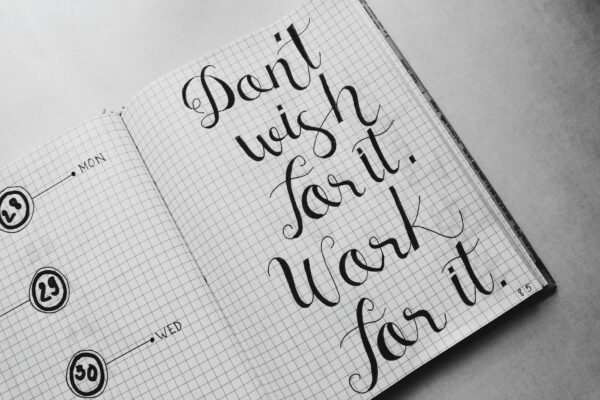 28
MON
29
WED
30
Don't
wish
for it.
Work
for it.
85